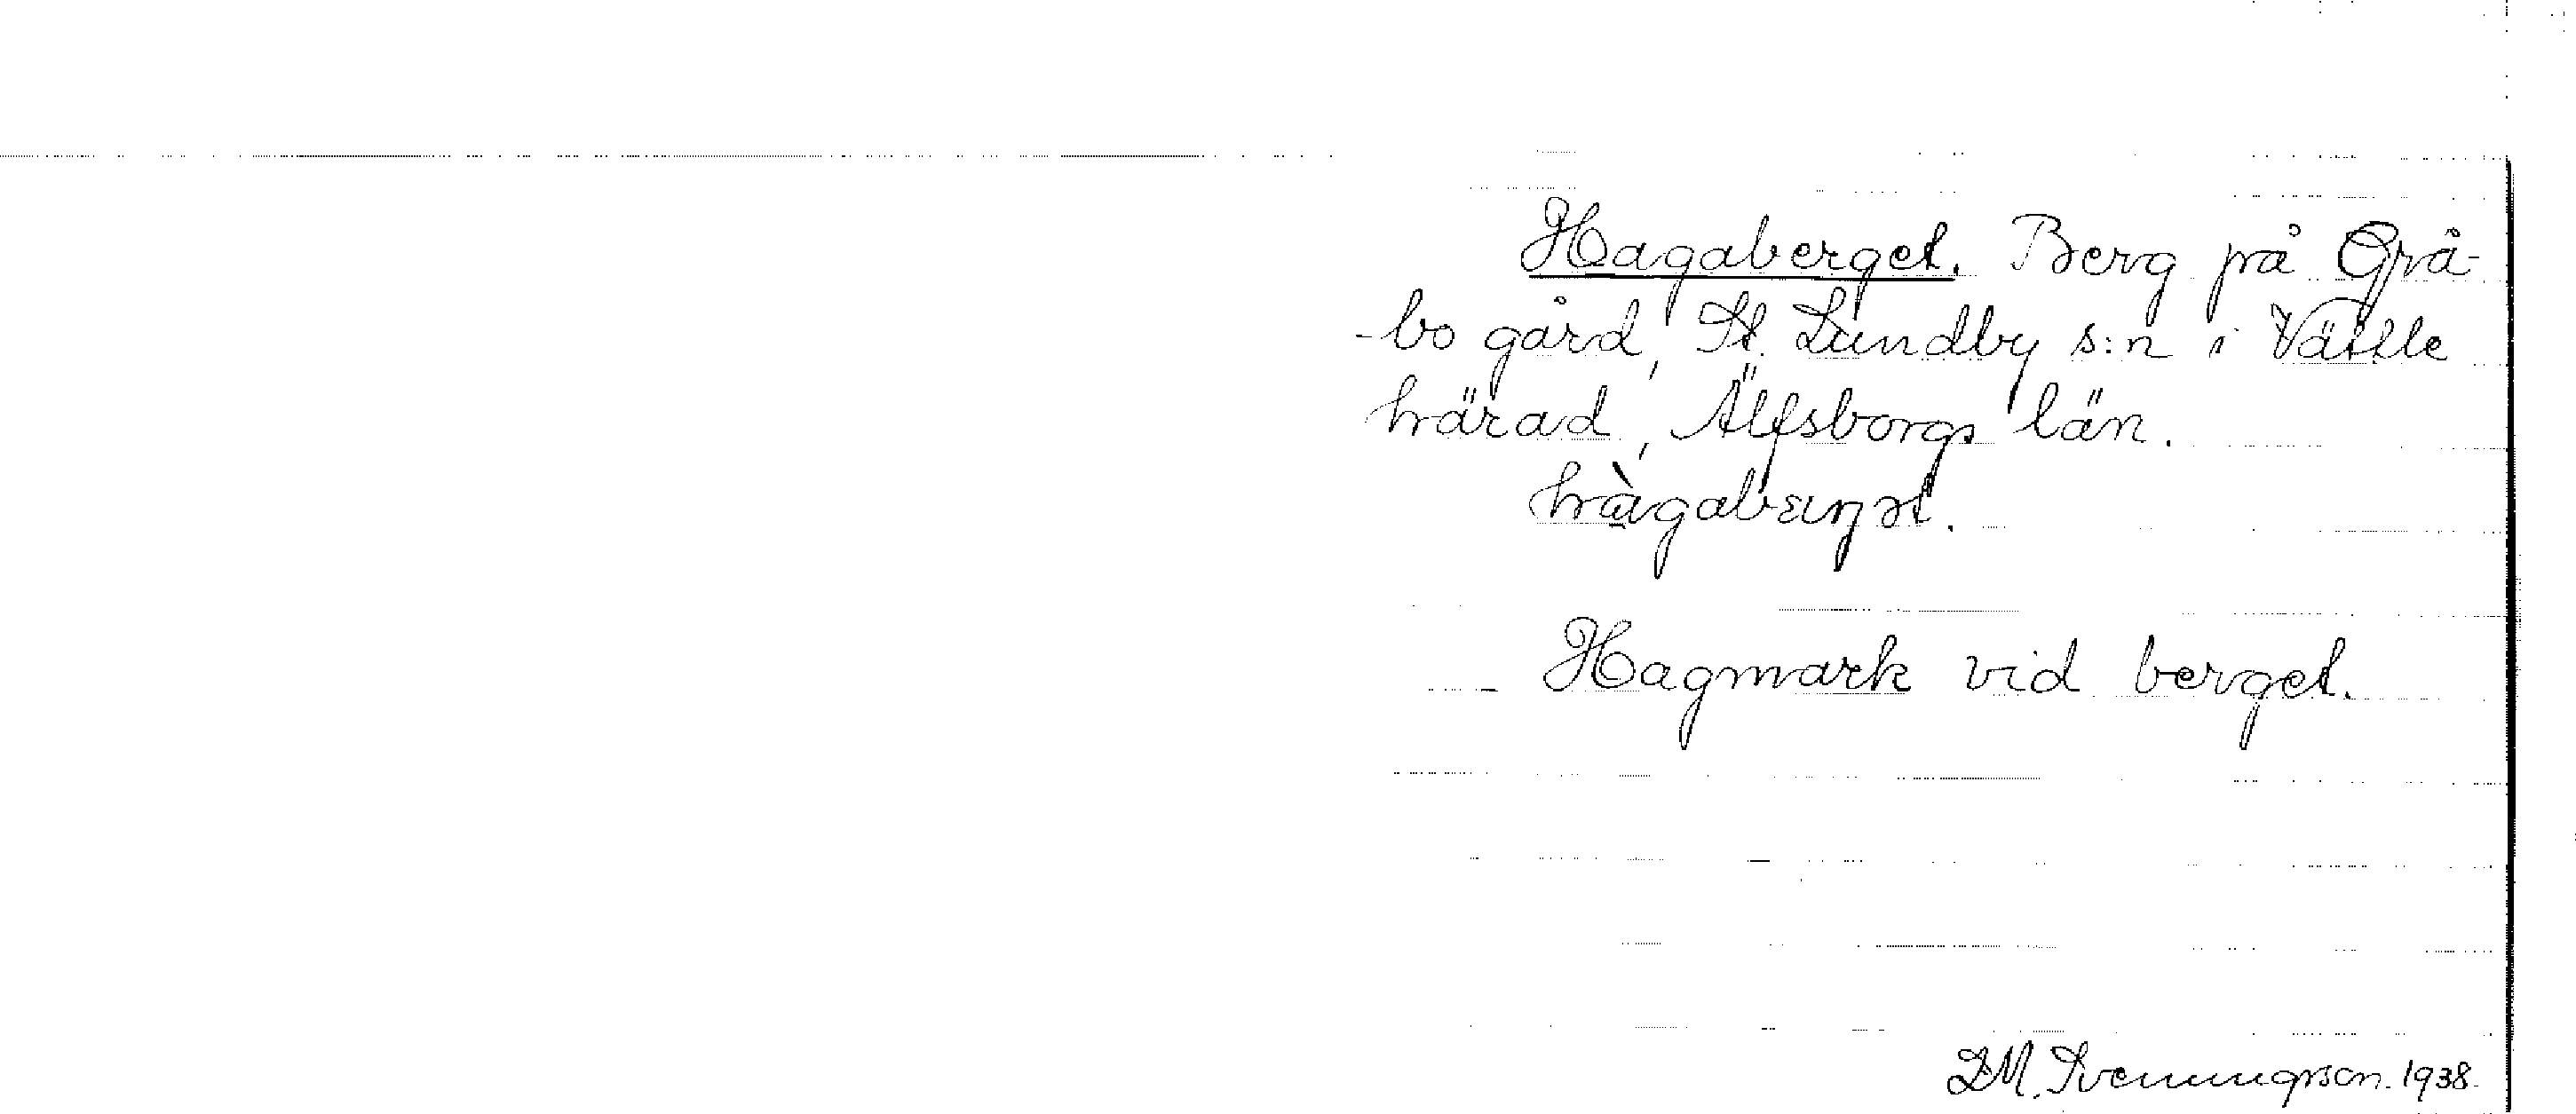 Hagaberget. Berg på Grå-
-bo gård, St. Lundby s:n i Vättle
härad, Älfsborgs län.
hàgabærjət.
Hagmark vid berget.
Svenungsson. 1938.